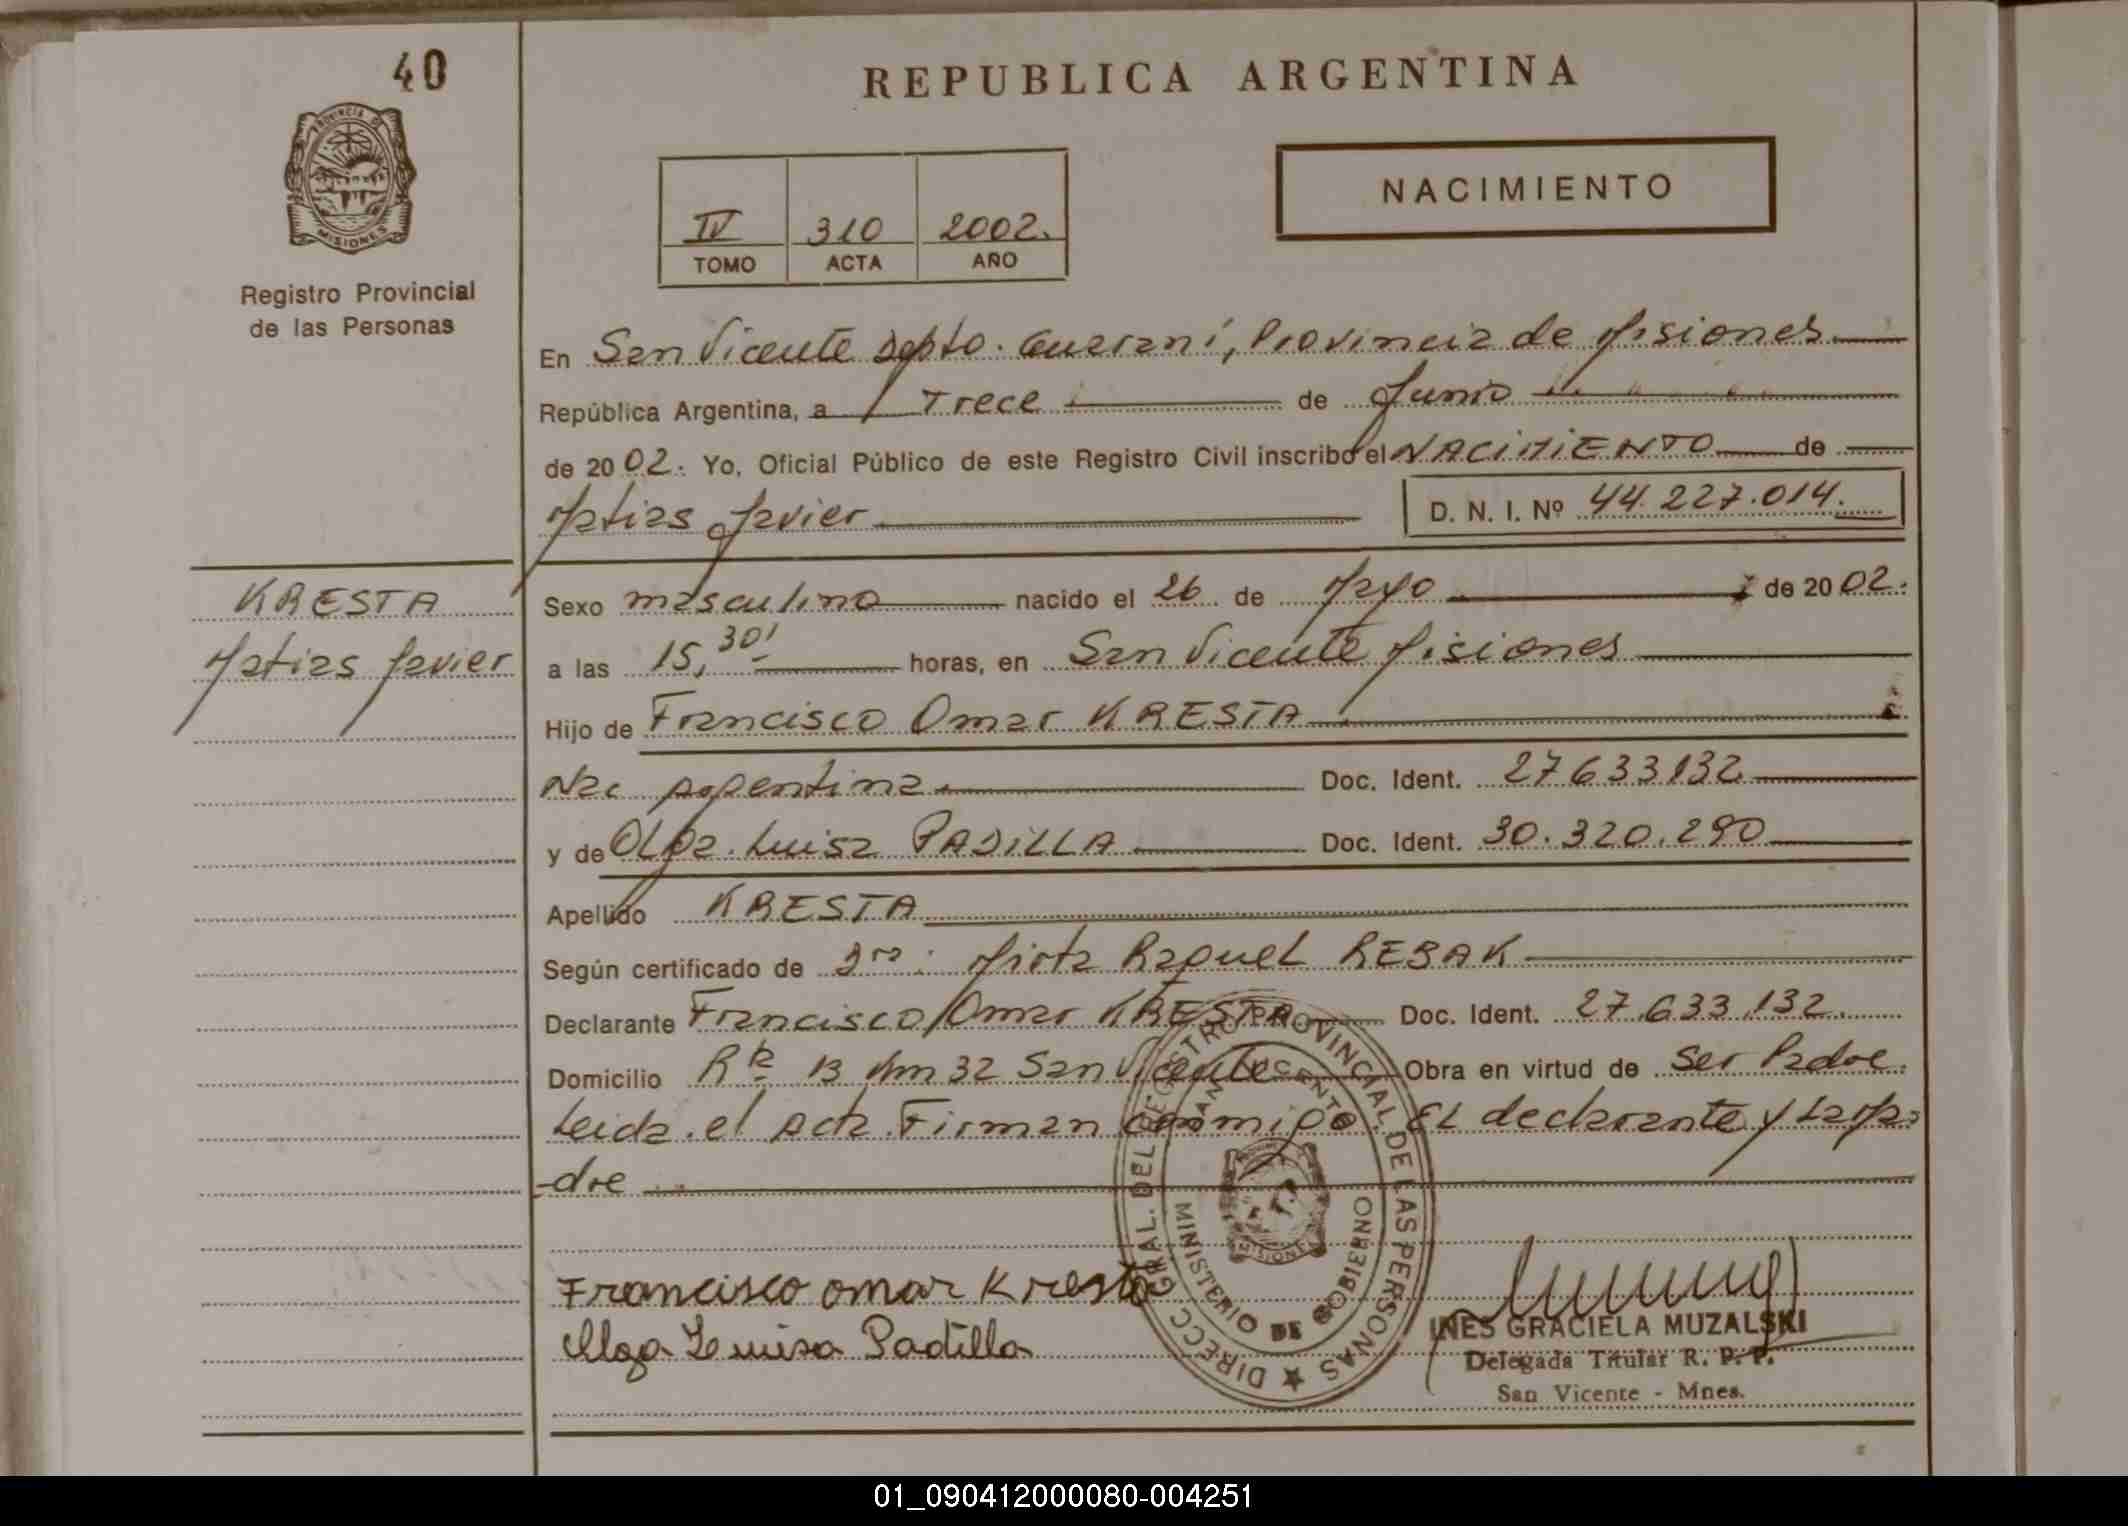 40
REPUBLICA ARGENTINA
PROVINCIA DE
MISIONES
Registro Provincial
de las Personas
IV 310 2002.
TOMO ACTA AÑO
NACIMIENTO
En San Vicente Depto. Guaraní, Provincia de Misiones
República Argentina, a Trece de Junio
de 2002. Yo, Oficial Público de este Registro Civil inscribo el NACIMIENTO de
Matias Javier
D. N. I. Nº 44.227.014.
KRESTA
Matias Javier
Sexo masculino nacido el 26 de Mayo de 2002.
a las 15,30' horas, en San Vicente Misiones
Hijo de Francisco Omar KRESTA
Nac Argentina Doc. Ident. 27633132
y de OLga Luisa PADILLA Doc. Ident. 30.320.290
Apellido KRESTA
Según certificado de Dra: Mirta Raquel REBAK
Declarante Francisco Omar KRESTA Doc. Ident. 27.633.132.
Domicilio Rta 13 Km 32 San Vicente Obra en virtud de Ser Padre.
Leida el Acta Firman conmigo EL declarante y La Ma-
-dre
DIRECC. GRAL. DEL REGISTRO PROVINCIAL DE LAS PERSONAS
SAN VICENTE
MISIONES
MINISTERIO DE GOBIERNO
Francisco omar Kresta
Olga Luisa Padilla
INES GRACIELA MUZALSKI
Delegada Titular R. P. P.
San Vicente - Mnes.
01_090412000080-004251